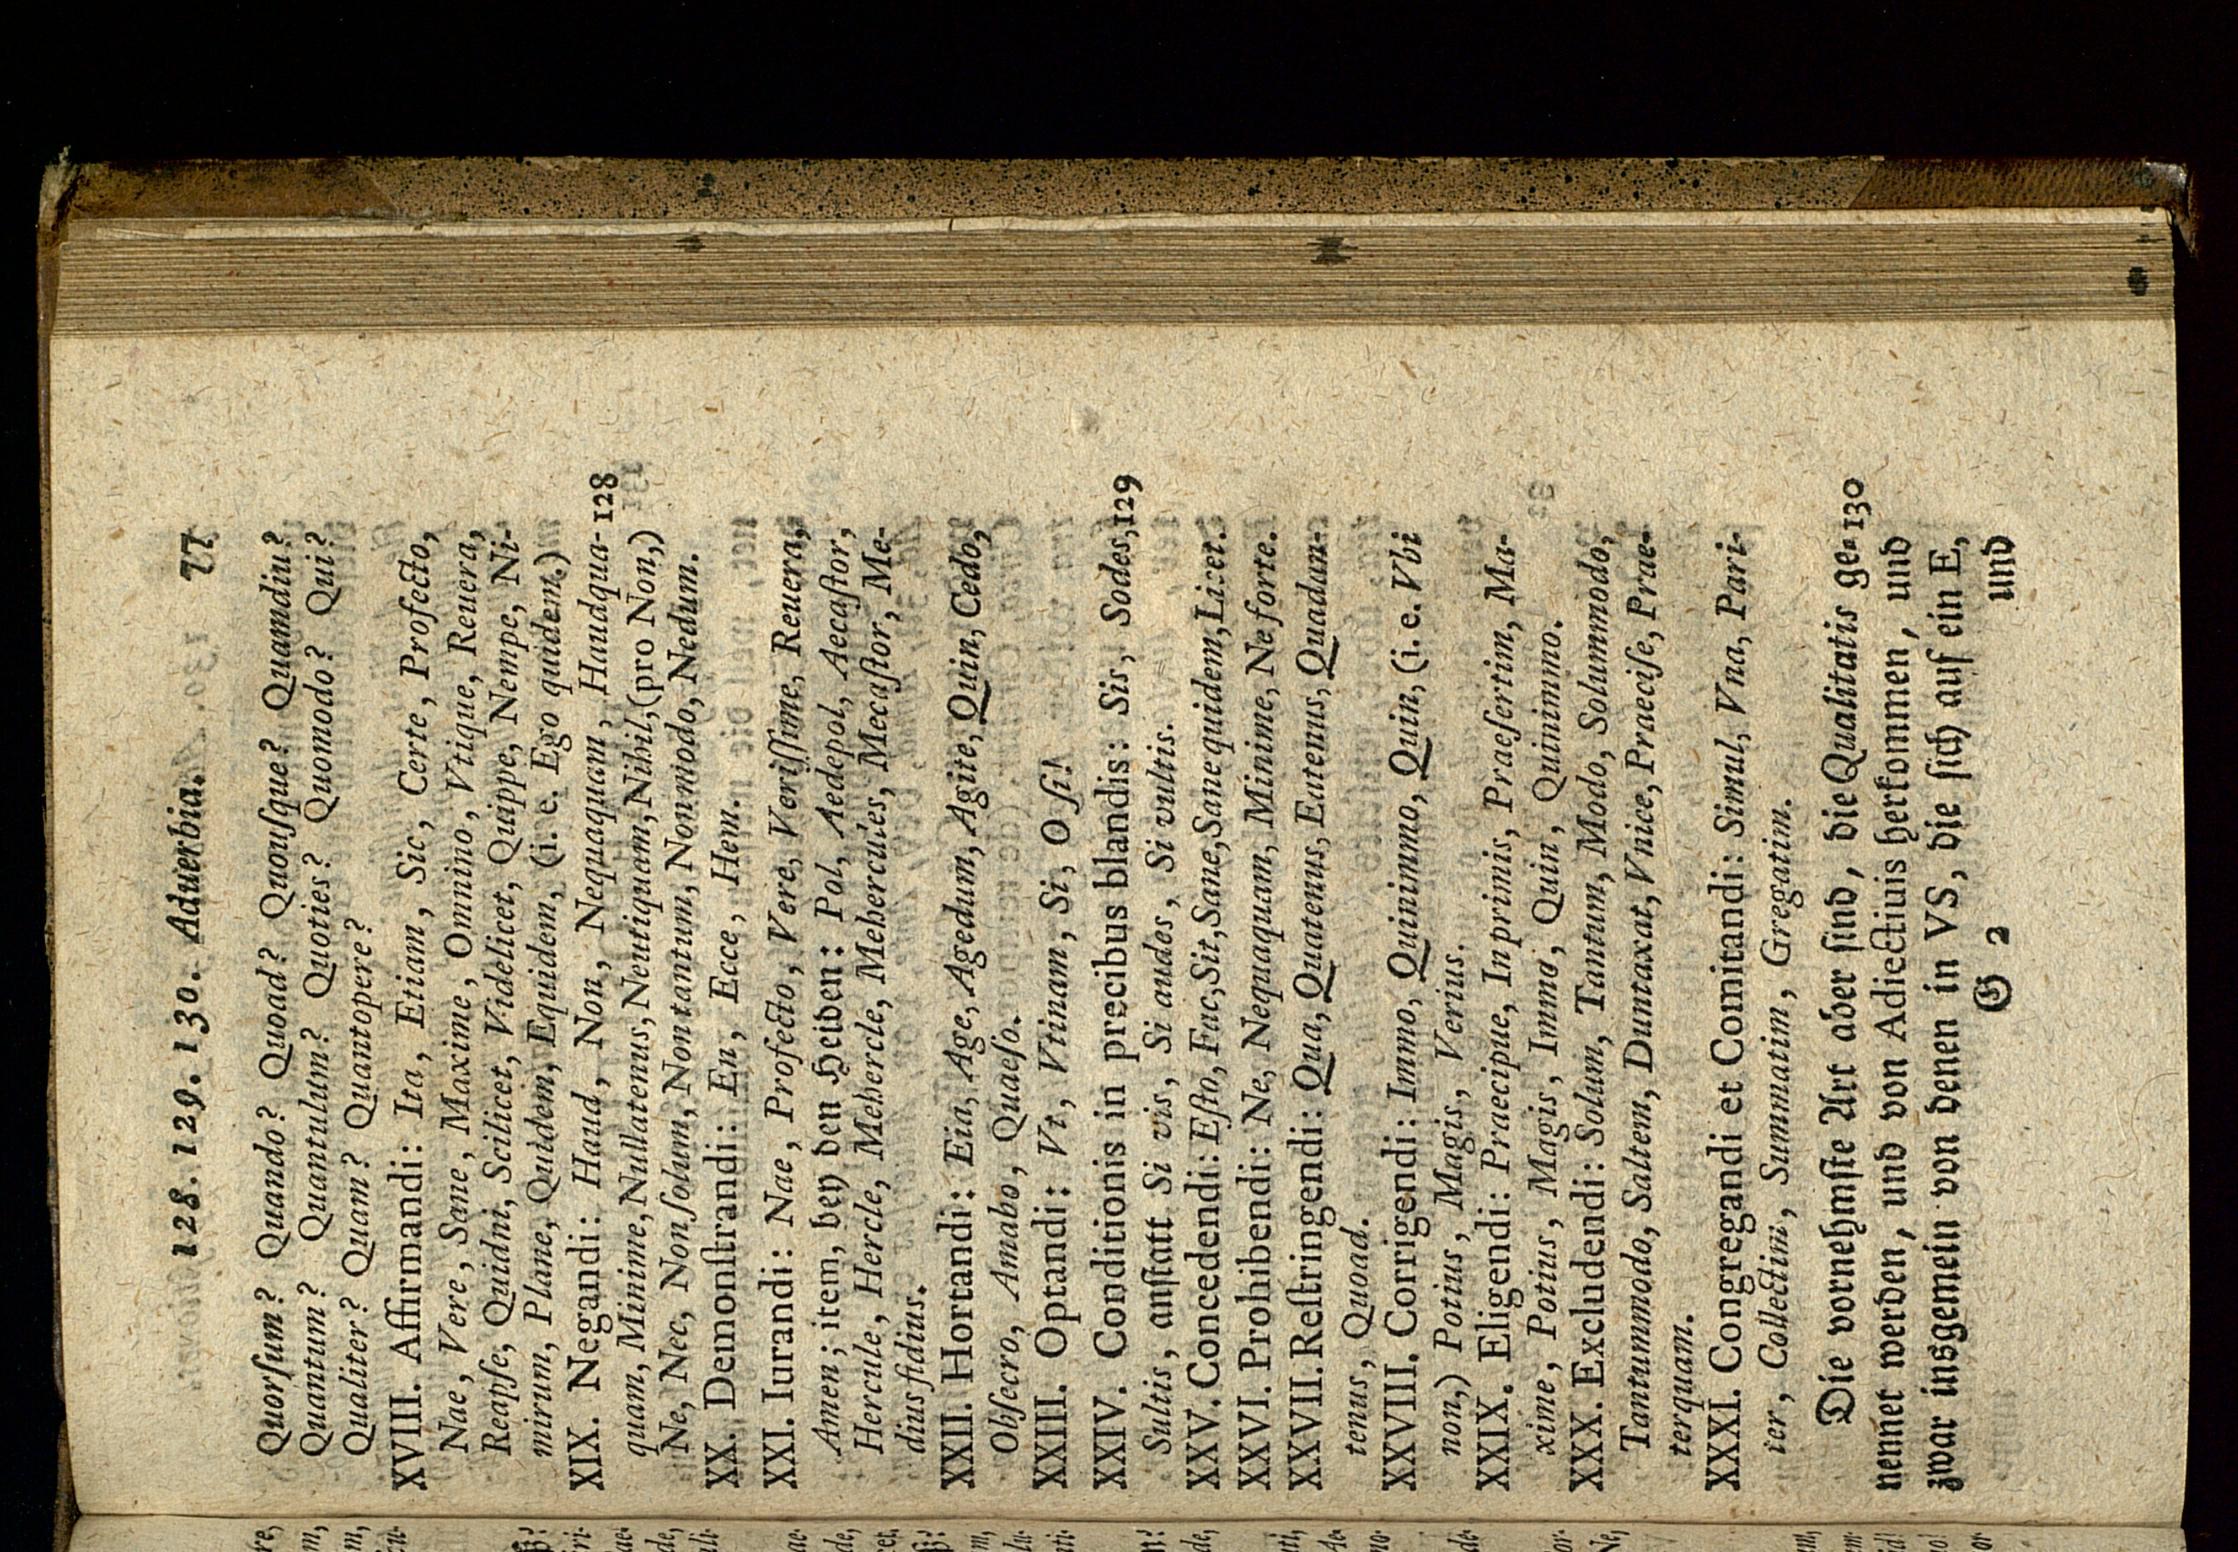 128. 129. 130. Aduerbia. 77
Quorſum? Quando? Quoad? Quouſque? Quamdiu?
Quantum? Quantulum? Quoties? Quomodo? Qui?
Qualiter? Quam? Quantopere?
XVIII. Affirmandi: Ita, Etiam, Sic, Certe, Profecto,
Nae, Vere, Sane, Maxime, Omnino, Vtique, Reuera,
Reapſe, Quidni, Scilicet, Videlicet, Quippe, Nempe, Ni-
mirum, Plane, Quidem, Equidem, (i. e. Ego quidem.)
XIX. Negandi: Haud, Non, Nequaquam, Haudqua- 128
quam, Minime, Nullatenus, Neutiquam, Nihil, (pro Non,)
Ne, Nec, Non ſolum, Non tantum, Non modo, Nedum.
XX. Demonſtrandi: En, Ecce, Hem.
XXI. Iurandi: Nae, Profecto, Vere, Veriſſime, Reuera,
Amen; item, bey den Heiden: Pol, Aedepol, Aecaſtor,
Hercule, Hercle, Mehercle, Mehercules, Mecaſtor, Me-
dius fidius.
XXII. Hortandi: Eia, Age, Agedum, Agite, Quin, Cedo,
Obſecro, Amabo, Quaeſo.
XXIII. Optandi: Vt, Vtinam, Si, O ſi!
XXIV. Conditionis in precibus blandis: Sis, Sodes, 129
Sultis, anſtatt Si vis, Si audes, Si vultis.
XXV. Concedendi: Eſto, Fac, Sit, Sane, Sane quidem, Licet.
XXVI. Prohibendi: Ne, Nequaquam, Minime, Ne forte.
XXVII. Reſtringendi: Qua, Quatenus, Eatenus, Quadam-
tenus, Quoad.
XXVIII. Corrigendi: Immo, Quinimmo, Quin, (i. e. Vbi
non,) Potius, Magis, Verius.
XXIX. Eligendi: Praecipue, In primis, Praeſertim, Ma-
xime, Potius, Magis, Immo, Quin, Quinimmo.
XXX. Excludendi: Solum, Tantum, Modo, Solummodo,
Tantummodo, Saltem, Duntaxat, Vnice, Praeciſe, Prae-
terquam.
XXXI. Congregandi et Comitandi: Simul, Vna, Pari-
ter, Collectim, Summatim, Gregatim.
Die vornehmſte Art aber ſind, die Qualitatis ge- 130
nennet werden, und von Adiectiuis herkommen, und
zwar insgemein von denen in VS, die ſich auf ein E,
G 2 und